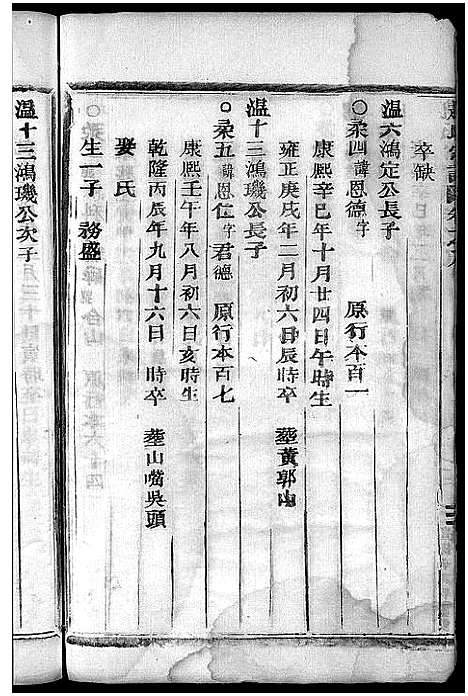 卒缺
温六鴻定公長子
○柔四諱恩德字 原行本百一
康熙辛巳年十月廿四日午時生
雍正庚戌年二月初六日辰時卒 塟黄郭山
温十三鴻璣公長子
○柔五諱恩仁字君德 原行本百七
康熙壬午年八月初六日亥時生
乾隆丙辰年九月十六日 時卒 塟山嘴吳頭
娶氏
生一子 務盛
温十三鴻璣公次子